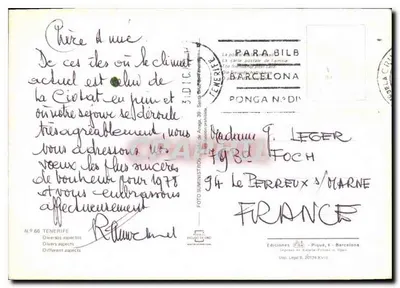 Chère Amie
De ces îles où le climat
actuel est celui de
La Ciotat en juin et
où notre séjour se déroule
très agréablement, nous
vous adressons nos
vœux les plus sincères
de bonheur pour 1978
et vous embrassons
affectueusement
Nº 66 TENERIFE
Diversos aspectos
Divers aspects
Different aspects
31.DIC
TENERIFE
PARA BILB
BARCELONA
PONGA Nº DI
Madame G LEGER
193 Bd FOCH
94 Le PERREUX S/MARNE
FRANCE